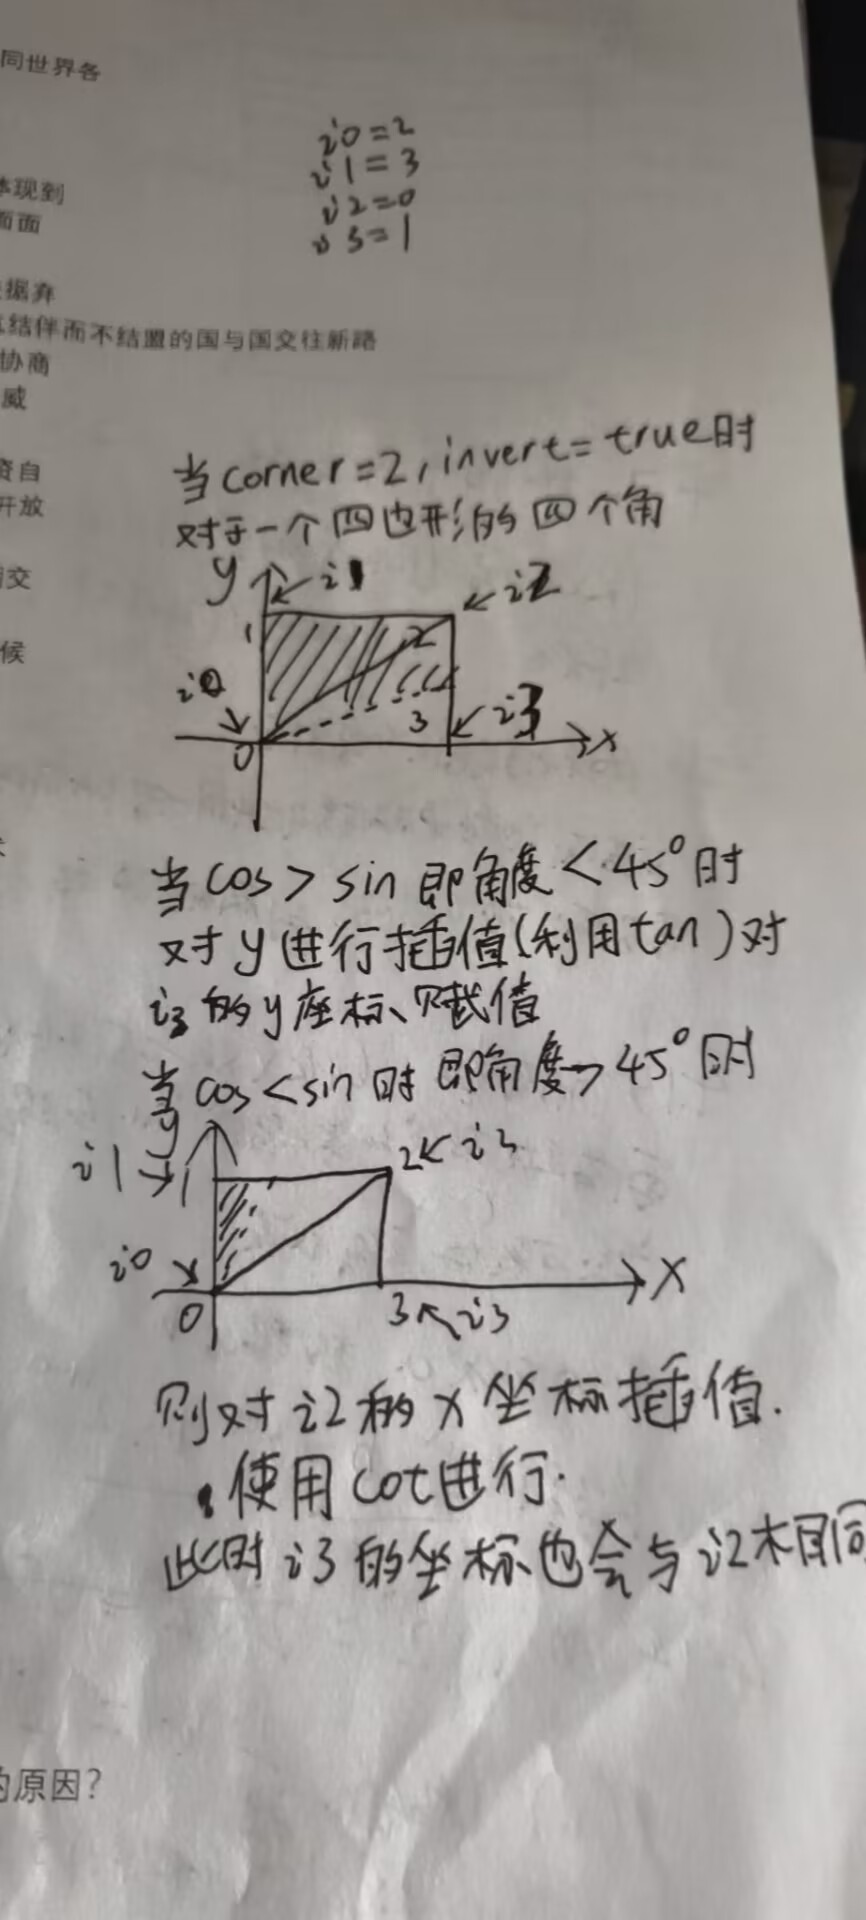 同世界各
i0=2
i1=3
i2=0
i3=1
体现到
面面
据弃
结伴而不结盟的国与国交往新路
协商
威
资自
开放
交
候
当corner=2,invert=true时
对于一个四边形的四个角
y i1 i2
1 2
i0
3 i3
0 x
当cos>sin即角度<45°时
对y进行插值(利用tan)对
i3的y座标赋值
当cos<sin时即角度>45°时
y
i1 1 2 i2
i0 x
0 3 i3
则对i2的x坐标插值.
使用cot进行.
此时i3的坐标也会与i2相同
的原因?